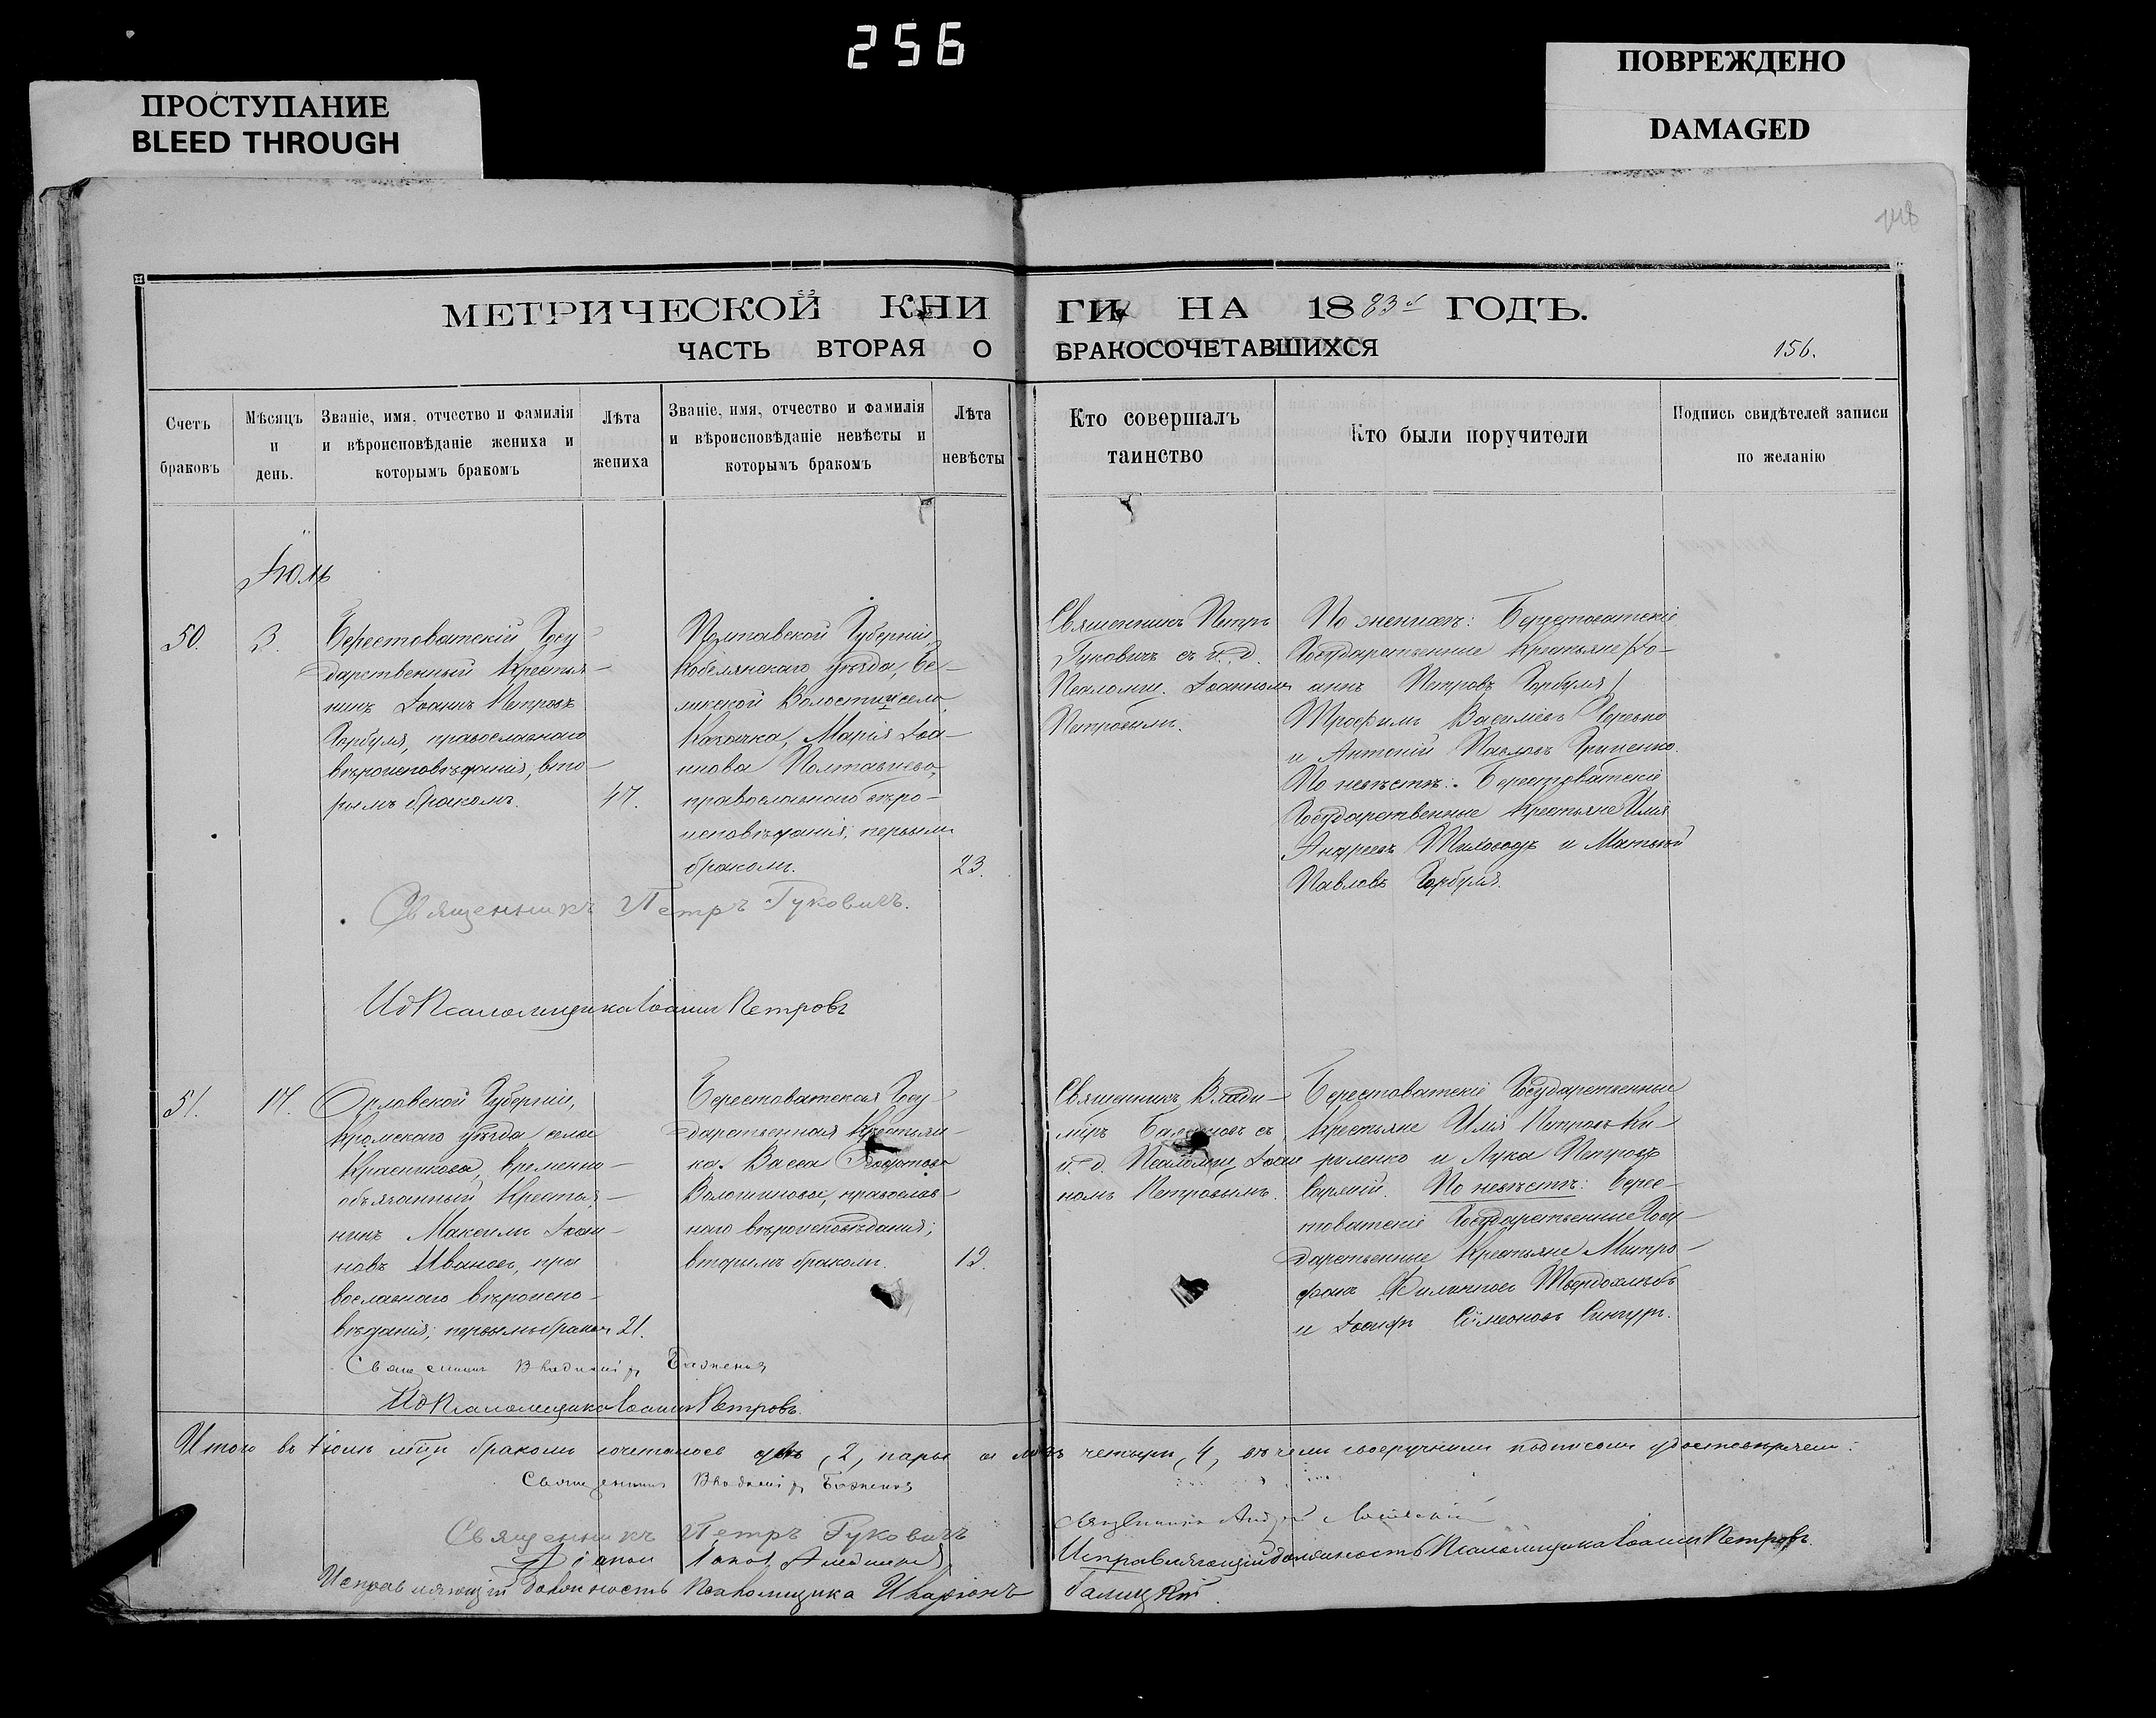 256
ПРОСТУПАНИЕ
BLEED THROUGH
ПОВРЕЖДЕНО
DAMAGED
148
МЕТРИЧЕСКОЙ КНИ
ГИ НА 1883й ГОДЪ.
ЧАСТЬ ВТОРАЯ О
БРАКОСОЧЕТАВШИХСЯ
156.
Счетъ
браковъ
Мѣсяцъ
и
день.
Званіе, имя, отчество и фамилія
и вѣроисповѣданіе жениха и
которымъ бракомъ
Лѣта
жениха
Званіе, имя, отчество и фамилія
и вѣроисповѣданіе невѣсты и
которымъ бракомъ
Лѣта
невѣсты
Кто совершалъ
таинство
Кто были поручители
Подпись свидѣтелей записи
по желанію
Іюль
50.
3.
Берестоватскій Госу
дарственный Крестья-
нинъ Іоаннъ Петровъ
Горбуля, православнаго
вѣроисповѣданія, вто-
рымъ бракомъ.
47.
Полтавской Губерніи,
Кобелянскаго уѣзда, Бе-
ликской Волости и села
Марія Іоа-
ннова
православнаго вѣро-
исповѣданія, первымъ
бракомъ.
23.
Священникъ Петръ
Гуковичъ съ и. д.
Псаломщ. Іоанномъ
Петровымъ.
По женихѣ: Берестоватскіе
Государственные Крестьяне Іо-
аннъ Петровъ Горбуля,
Трофимъ Василіевъ
и Антоній Павловъ Гриценко.
По невѣстѣ: Берестоватскіе
Государственные Крестьяне Илія
Андреевъ и Матѳей
Павловъ Горбуля.
Священникъ Петръ Гуковичъ.
ИдПсаломщика Іоаннъ Петровъ
51.
17.
Орловской Губерніи,
Кромскаго уѣзда села
Красникова, временно-
обязанный Крестья-
нинъ Максимъ Іоан-
новъ Ивановъ, пра
вославнаго вѣроиспо-
вѣданія; первымъ бракомъ
21.
Берестоватская Госу
дарственная Крестьян-
ка Васса
православ-
наго вѣроисповѣданія;
вторымъ бракомъ.
19.
Священникъ Влади-
міръ Баженовъ съ
и. д. Псаломщ. Іоан
номъ Петровымъ.
Берестоватскіе Государственные
Крестьяне Илія Петровъ Ки-
риленко и Лука Петровъ
По невѣстѣ: Берес-
товатскіе Государственные Госу-
дарственные Крестьяне Митро-
фанъ Филипповъ Твердохлѣбъ
и Іосифъ Симеоновъ Синчугъ.
Священникъ Владиміръ Баженовъ
ИдПсаломщика Іоаннъ Петровъ.
Итого въ Іюлѣ м-цѣ бракомъ сочеталось двѣ, 2, пары а лицъ четыри, 4, въ чемъ своеручными подписями удостовѣряемъ:
Священникъ Владиміръ Баженовъ
Священникъ Петръ Гуковичъ
Священникъ Андрей
Діаконъ
Исправляющій должность Псаломщика Іоаннъ Петровъ.
Исправляющій должность Псаломщика Иларіонъ Галицкій.